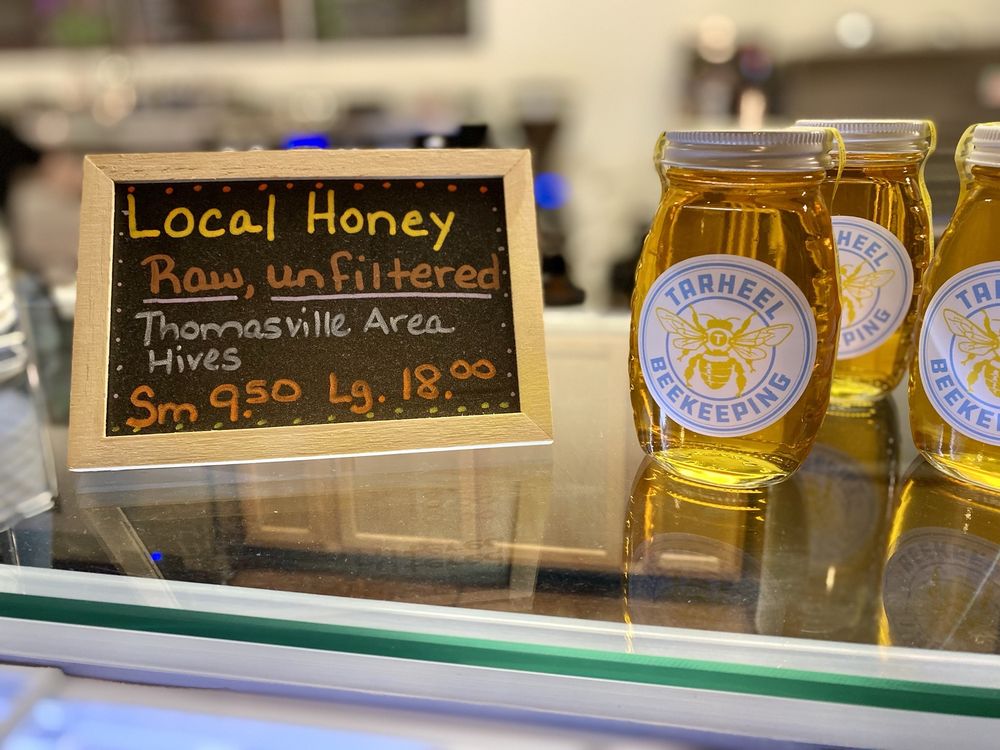 Local Honey
Raw, unfiltered
Thomasville Area
Hives
Sm 9.50 Lg. 18.00
TARHEEL
T
BEEKEEPING
HEEL
PING
TAR
BEEKE